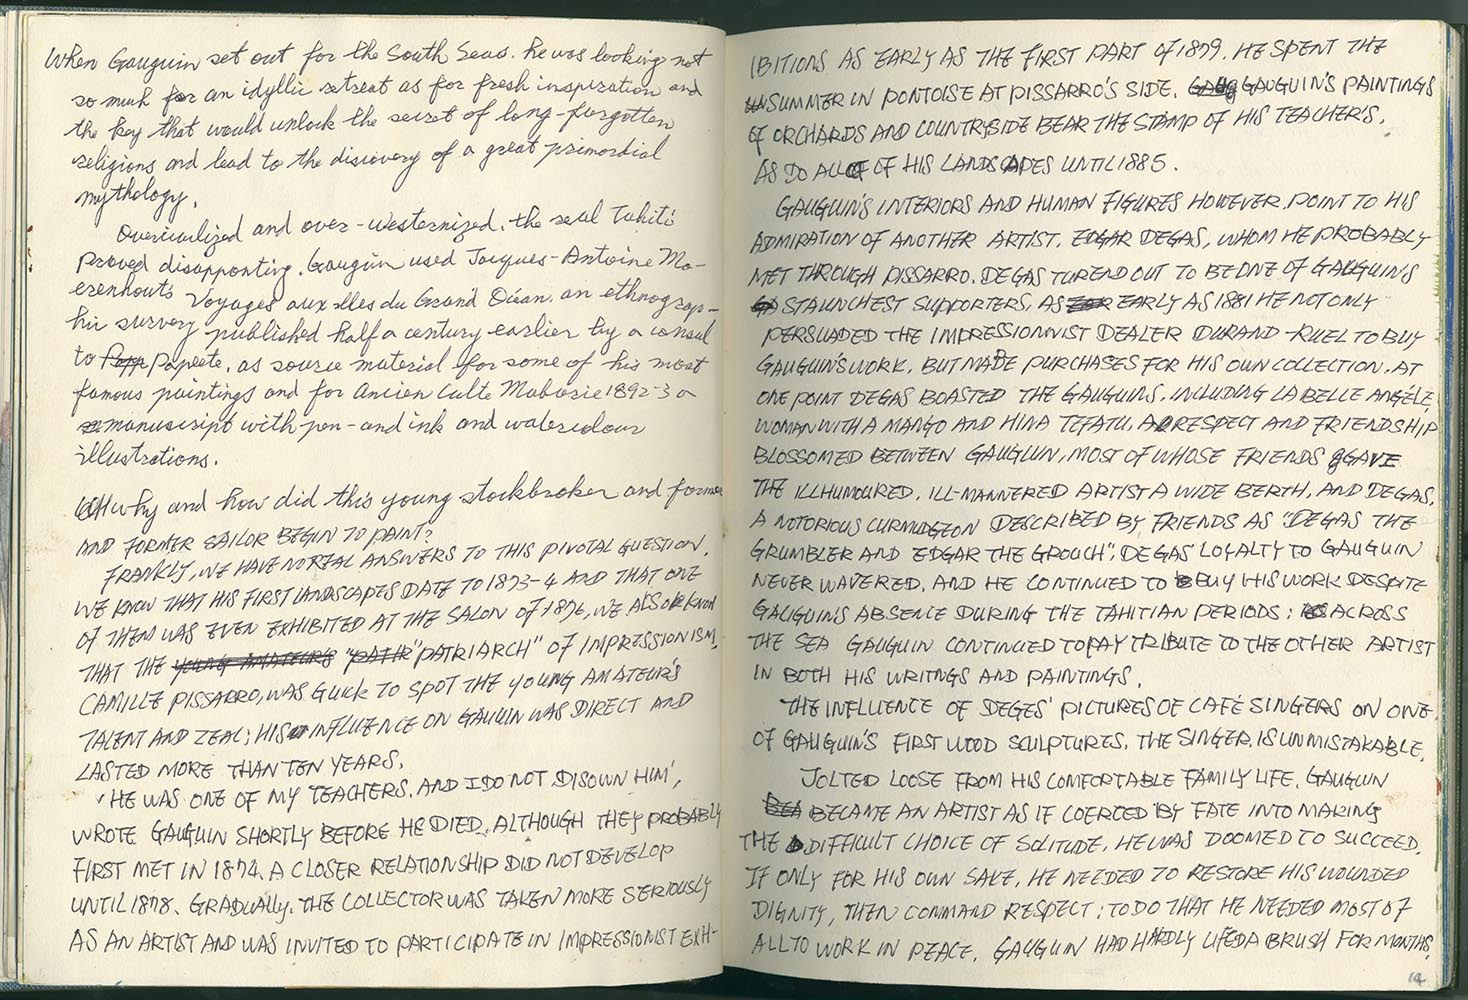 When Gauguin set out for the South Seas. he was looking not
so much for an idyllic retreat as for fresh inspiration and
the key that would unlock the secret of long-forgotten
religions and lead to the discovery of a great primordial
mythology.
Overcivilized and over-westernized. the real Tahiti
proved disappointing. Gauguin used Jacques-Antoine Mo-
erenhout's Voyages aux Iles du Grand Océan. an ethnograp-
hic survey published half a century earlier by a consul
to Papeete. as source material for some of his most
famous paintings and for Ancien Culte Mahorie 1892-3 a
manuscript with pen-and ink and watercolour
illustrations.
why and how did this young stockbroker and former
AND FORMER SAILOR BEGIN TO PAINT?
FRANKLY, WE HAVE NO REAL ANSWERS TO THIS PIVOTAL QUESTION.
WE KNOW THAT HIS FIRST LANDSCAPES DATE TO 1873-4 AND THAT ONE
OF THEM WAS EVEN EXHIBITED AT THE SALON OF 1876, WE ALSO KNOW
THAT THE YOUNG AMATEUR'S "PATR "PATRIARCH" OF IMPRESSIONISM,
CAMILLE PISSARRO, WAS QUICK TO SPOT THE YOUNG AMATEUR'S
TALENT AND ZEAL; HIS INFLUENCE ON GAUGUIN WAS DIRECT AND
LASTED MORE THAN TEN YEARS.
'HE WAS ONE OF MY TEACHERS. AND I DO NOT DISOWN HIM',
WROTE GAUGUIN SHORTLY BEFORE HE DIED. ALTHOUGH THEY PROBABLY
FIRST MET IN 1874. A CLOSER RELATIONSHIP DID NOT DEVELOP
UNTIL 1878. GRADUALLY. THE COLLECTOR WAS TAKEN MORE SERIOUSLY
AS AN ARTIST AND WAS INVITED TO PARTICIPATE IN IMPRESSIONIST EXH-
IBITIONS AS EARLY AS THE FIRST PART OF 1879. HE SPENT THE
SUMMER IN PONTOISE AT PISSARRO'S SIDE. GAUGUIN'S PAINTINGS
OF ORCHARDS AND COUNTRYSIDE BEAR THE STAMP OF HIS TEACHER'S.
AS DO ALL OF HIS LANDSCAPES UNTIL 1885.
GAUGUIN'S INTERIORS AND HUMAN FIGURES HOWEVER. POINT TO HIS
ADMIRATION OF ANOTHER ARTIST. EDGAR DEGAS, WHOM HE PROBABLY
MET THROUGH PISSARRO. DEGAS TUREND OUT TO BE ONE OF GAUGUIN'S
STAUNCHEST SUPPORTERS, AS EARLY AS 1881 HE NOT ONLY
PERSUADED THE IMPRESSIONNIST DEALER DURAND-RUEL TO BUY
GAUGUIN'S WORK, BUT MADE PURCHASES FOR HIS OWN COLLECTION. AT
ONE POINT DEGAS BOASTED THE GAUGUINS. INCLUDING LA BELLE ANGÉLE,
WOMAN WITH A MANGO AND HINA TEFATU. A RESPECT AND FRIENDSHIP
BLOSSOMED BETWEEN GAUGUIN, MOST OF WHOSE FRIENDS GAVE
THE ILLHUMOURED. ILL-MANNERED ARTIST A WIDE BERTH, AND DEGAS,
A NOTORIOUS CURMUDGEON DESCRIBED BY FRIENDS AS "DEGAS THE
GRUMBLER AND EDGAR THE GROUCH". DEGAS' LOYALTY TO GAUGUIN
NEVER WAVERED. AND HE CONTINUED TO BUY HIS WORK DESPITE
GAUGUIN'S ABSENCE DURING THE TAHITIAN PERIODS; ACROSS
THE SEA GAUGUIN CONTINUED TO PAY TRIBUTE TO THE OTHER ARTIST
IN BOTH HIS WRITNGS AND PAINTINGS.
THE INFLUENCE OF DEGES' PICTURES OF CAFÉ SINGERS ON ONE
OF GAUGUIN'S FIRST WOOD SCULPTURES, THE SINGER. IS UNMISTAKABLE.
JOLTED LOOSE FROM HIS COMFORTABLE FAMILY LIFE. GAUGUIN
BEA BECAME AN ARTIST AS IF COERCED BY FATE INTO MAKING
THE DIFFICULT CHOICE OF SOLITUDE. HE WAS DOOMED TO SUCCEED.
IF ONLY FOR HIS OWN SAKE. HE NEEDED TO RESTORE HIS WOUNDED
DIGNITY, THEN COMMAND RESPECT; TO DO THAT HE NEEDED MOST OF
ALL TO WORK IN PEACE. GAUGUIN HAD HARDLY LIFED A BRUSH FOR MONTHS,